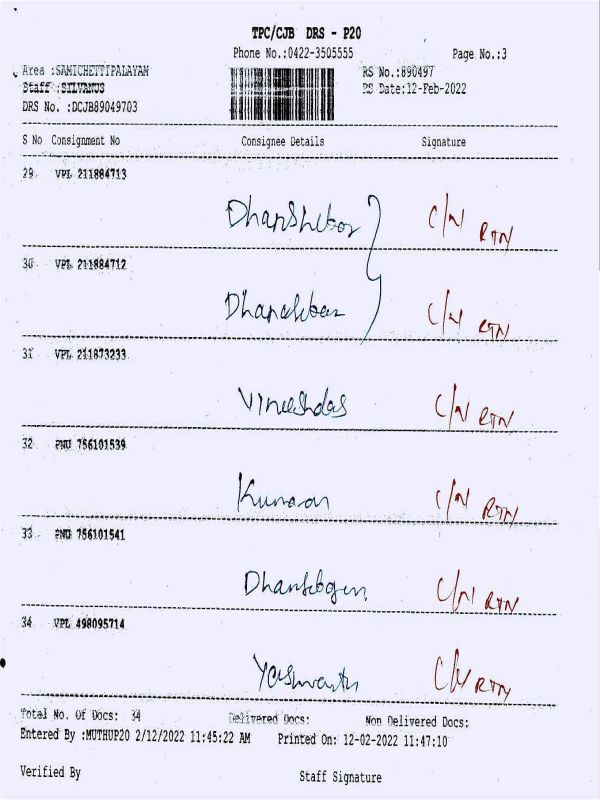 TPC/CJB DRS - P20
Phone No.:0422-3505555 Page No.:3
Area :SAMICHETTIPALAYAM RS No.:890497
Staff :SILVANUS RS Date:12-Feb-2022
DRS No. :DCJB89049703
S No Consignment No Consignee Details Signature
29 VPL 211884713
C/N RTN
30 VPL 211884712
C/N RTN
31 VPL 211873233
Vineeshdas C/N RTN
32 PNU 756101539
Kumaar C/N RTN
33 PNU 756101541
C/N RTN
34 VPL 498095714
Yaswanth C/N RTN
Total No. Of Docs: 34 Delivered Docs: Non Delivered Docs:
Entered By :MUTHUP20 2/12/2022 11:45:22 AM Printed On: 12-02-2022 11:47:10
Verified By Staff Signature